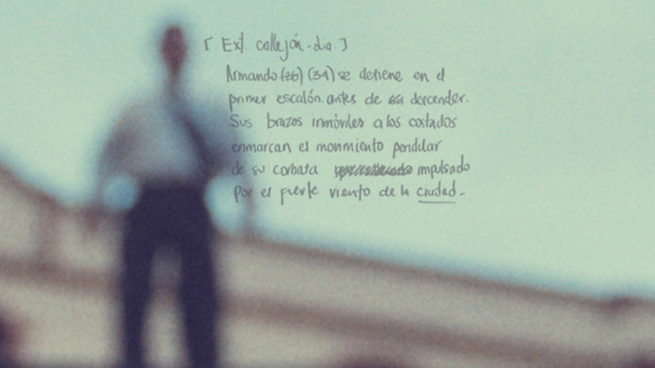 [ Ext. callejón - dia. ]
Armando (26) (34) se detiene en el
primer escalón antes de descender.
Sus brazos inmóviles a los costados
enmarcan el movimiento pendular
de su corbata impulsado
por el fuerte viento de la ciudad.